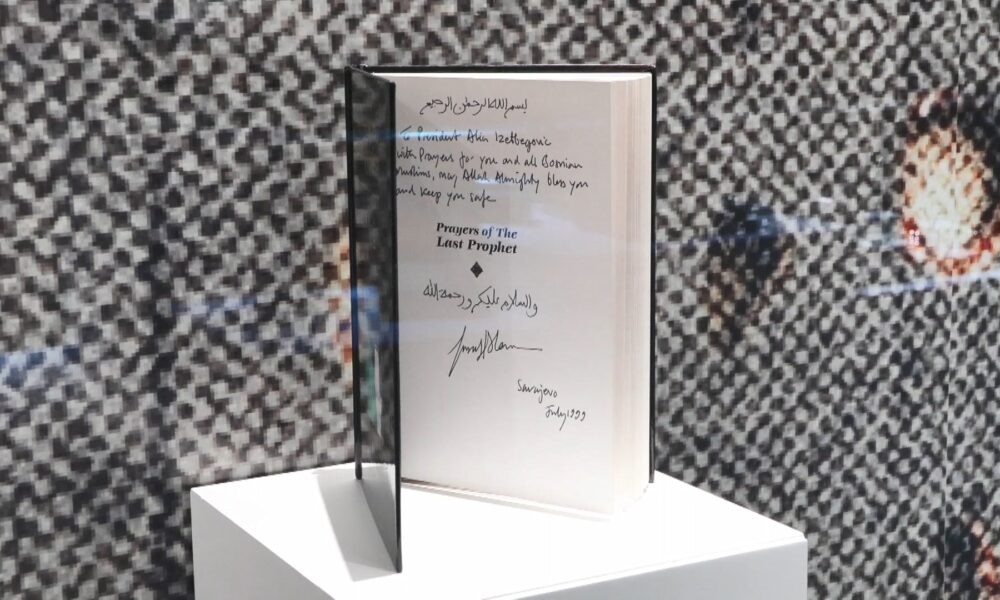 بسم الله الرحمن الرحيم
To President Alia Izetbegovic
with Prayers for you and all Bosnian
muslims, may Allah Almighty bless you
and keep you safe
Prayers of The
Last Prophet
والسلام عليكم ورحمة الله
Yusuf Islam
Sarajevo
July 1999